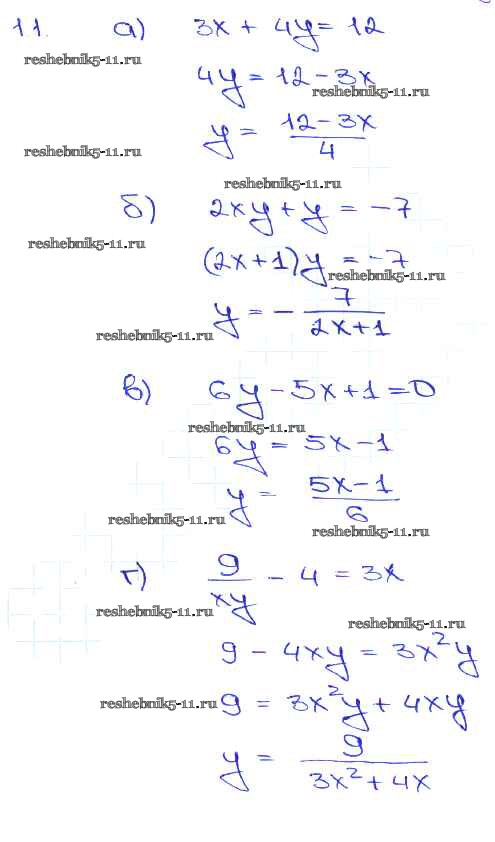 11. а) 3x + 4y = 12
reshebnik5-11.ru
4y = 12 - 3x
reshebnik5-11.ru
y = (12 - 3x)/4
reshebnik5-11.ru
reshebnik5-11.ru
б) 2xy + y = -7
reshebnik5-11.ru
(2x + 1)y = -7
reshebnik5-11.ru
y = - 7/(2x + 1)
reshebnik5-11.ru
в) 6y - 5x + 1 = 0
reshebnik5-11.ru
6y = 5x - 1
y = (5x - 1)/6
reshebnik5-11.ru
reshebnik5-11.ru
г) 9/(xy) - 4 = 3x
reshebnik5-11.ru
reshebnik5-11.ru
9 - 4xy = 3x²y
reshebnik5-11.ru
9 = 3x²y + 4xy
y = 9/(3x² + 4x)